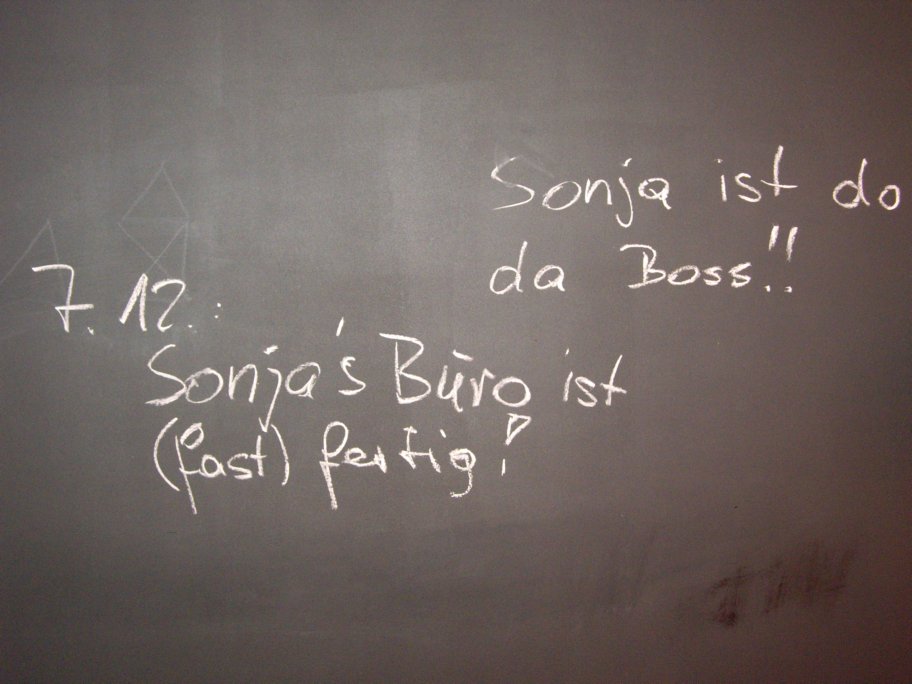 Sonja ist do
da Boss!!
7.12.:
Sonja's Büro ist
(fast) fertig!